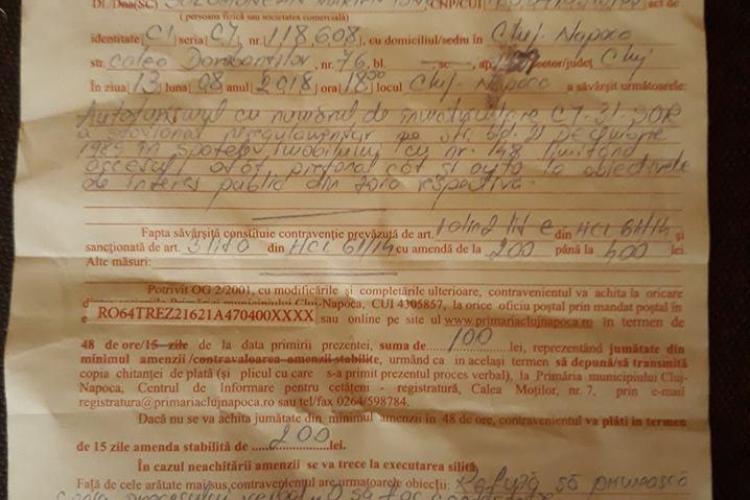 Dl. Dna(SC) CNP/CUI act de
( persoana fizică sau societatea comercială)
identitate CI seria CJ nr. 118608, cu domiciliu/sediu în Cluj-Napoca
str. Calea Dorobanților, nr. 76, bl. sc. ap. sector/județ Cluj
În ziua 13 luna 08 anul 2018 ora 18 locul Cluj-Napoca a săvârșit următoarele:
Autoturismul cu numărul de înmatriculare CJ-31-SOR
a staționat neregulamentar pe str. bd. 21 Decembrie
1989 în spatele imobilului cu nr. 148 limitând
accesul atât pietonal cât și auto la obiectivele
de interes public din zona respectivă.
Fapta săvârșită constituie contravenție prevăzută de art. 1 alin 2 lit e din HCL 61/14 și
sancționată de art. 3 lit a din HCL 61/14 cu amendă de la 200 până la 400 lei.
Alte măsuri:
Potrivit OG 2/2001, cu modificările și completările ulterioare, contravenientul va achita la oricare
Primăriei municipiului Cluj-Napoca, CUI 4305857, la orice oficiu poștal prin mandat poștal în
RO64TREZ21621A470400XXXX sau online pe site ul www.primariaclujnapoca.ro in termen de
48 de ore/15 zile de la data primirii prezentei, suma de 100 lei, reprezentând jumătate din
minimul amenzii /contravaloarea amenzii stabilite, urmând ca in același termen să depună/să transmită
copia chitanței de plată (și plicul cu care s-a primit prezentul proces verbal), la Primăria municipiului Cluj-
Napoca, Centrul de Informare pentru cetățeni - registratură, Calea Moților, nr. 7, prin e-mail
registratura@primariaclujnapoca.ro sau tel/fax 0264/598784.
Dacă nu se va achita jumătate din minimul amenzii in 48 de ore, contravenientul va plăti in termen
de 15 zile amenda stabilită de 200 lei.
În cazul neachitării amenzii se va trece la executarea silită.
Față de cele arătate mai sus, contravenientul are următoarele obiecții: Refuză să primească